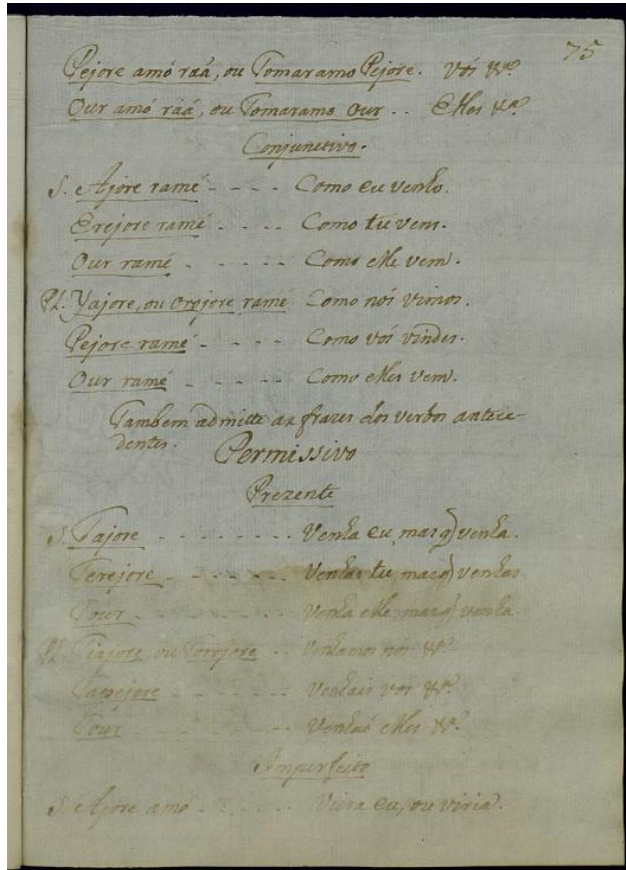 75
Pejore amó räá, ou Tomaramo Pejore. Vós &ª
Our amó räá, ou Tomaramo Our . . Elles &ª
Conjunctivo.
S. Ajore ramé - - - - Como eu venho.
Erejore ramé - - - - Como tu vens.
Our ramé - - - - - Como elle vem.
Pl. Yajore, ou orojore ramé Como nós vimos.
Pejore ramé - - - - Como vós vindes.
Our ramé - - - - - Como elles vem.
Tambem admitte as frazes dos verbos antece-
dentes.
Permissivo
Prezente
S. Tajore - - - - - - - - Venha eu, mas q) venha.
Terejore - - - - - - - Venhas tu, mas q) venhas
Tour - - - - - - - - Venha elle, mas q) venha
Pl. Tiajore, ou Torojore - - Venhamos nós &ª
Tapejore - - - - - - - Venhais vós &ª
Tour - - - - - - - - Venhaó elles &ª
Imperfeito
S. Ajore amó - - - - - - Viera eu, ou viria.